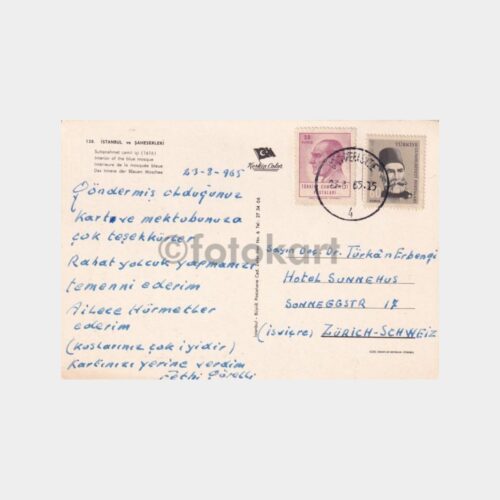 138. İSTANBUL ve ŞAHESERLERİ
Sultanahmet camii içi (1616)
Interior of the blue mosque
Intérieure de la mosquée bleue
Das Innere der Blauen Moschee
Keskin Color
23-8-965
Göndermiş olduğunuz
Karta ve mektubunuza
çok teşekkürler
Rahat yolculuk yapmanızı
temenni ederim
Ailece Hürmetler
ederim
(kuşlarımız çok iyidir)
Kartınızı yerine verdim
Fethi
TÜRKİYE CUMHURİYETİ
POSTALARI
TÜRKİYE
65-15
4
©fotokart
Sayın Doç. Dr. Türkân Erbengi
HOTEL SUNNEHUS
SONNEGGSTR 17
(isviçre) ZÜRİCH-SCHWEİZ